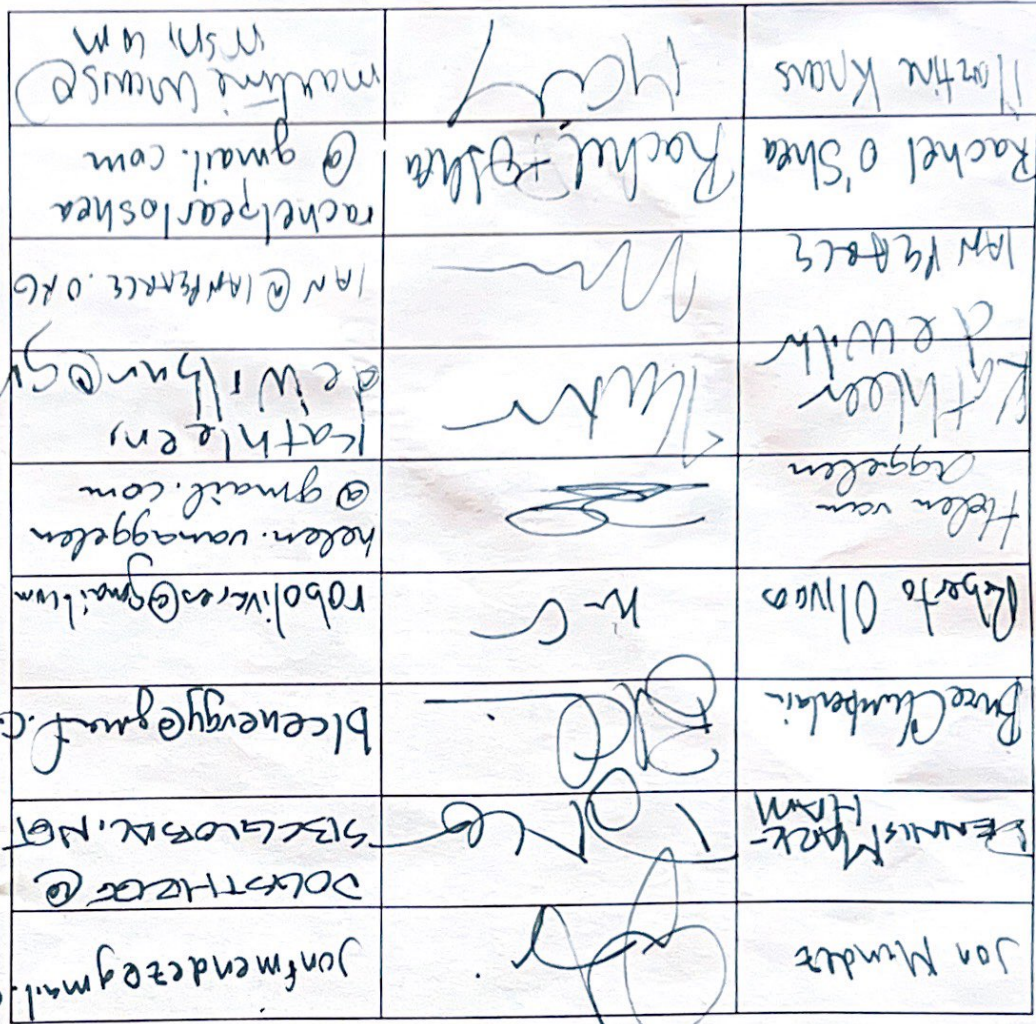 Jon Mendez
jonfmendez@gmail.
DENNIS MARK-
HAM
DOLYSTHEOS@
SBCGLOBAL.NET
Bruce Chamberlain
blcenergy@gmail.c
Roberto Olivares
robolivares@gmail.com
Helen van
Aggelen
helen.vanaggelen
@gmail.com
Kathleen
deWilbur
Kathleen,
deWilbur@gm
IAN PEARCE
IAN@IANPEARCE.ORG
Rachel O'Shea
Rachel O'Shea
rachelpearloshea
@gmail.com
Martine Knaus
martineknaus@
msn.com